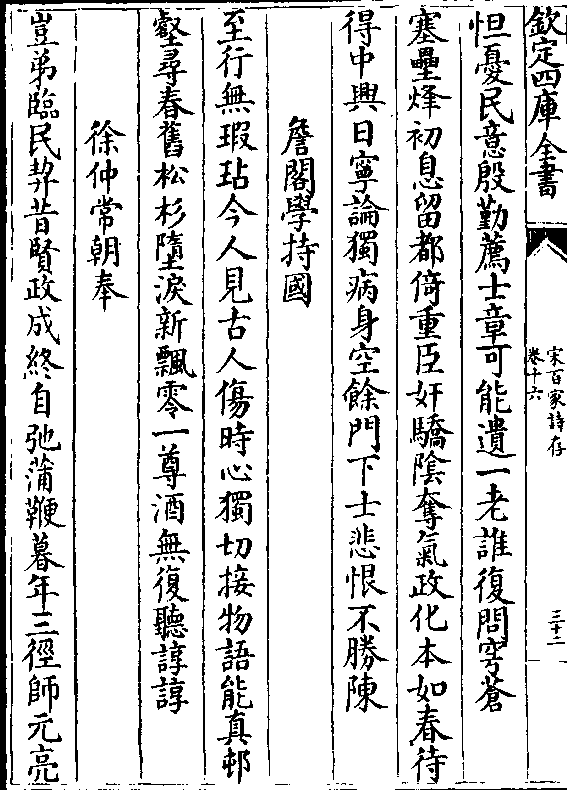 欽定四庫全書
宋百家詩存
卷十六
三十二
怛憂民意殷勤薦士章可能遺一老誰復問穹蒼
塞壘烽初息留都倚重臣奸驕陰奪氣政化本如春待
得中興日寧論獨病身空餘門下士悲恨不勝陳
詹閣學持國
至行無瑕玷今人見古人傷時心獨切接物語能真邨
壑尋春舊松杉墮淚新飄零一尊酒無復聽諄諄
徐仲常朝奉
豈弟臨民契昔賢政成終自弛蒲鞭暮年三徑師元亮